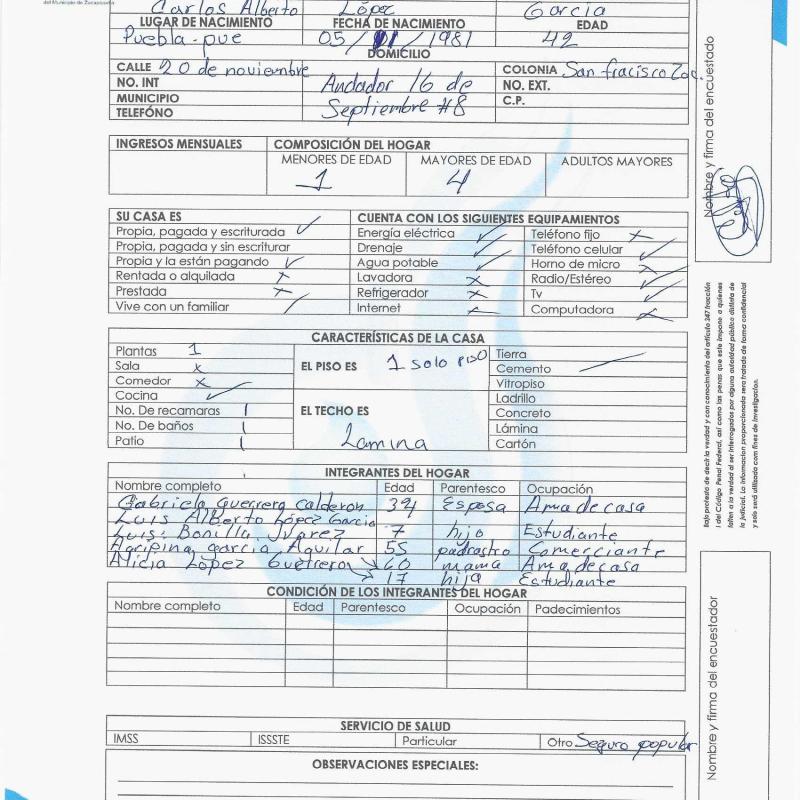 del Municipio de Zacapoaxtla
Carlos Alberto López Garcia
LUGAR DE NACIMIENTO FECHA DE NACIMIENTO EDAD
Puebla-pue 05/01/1981 42
DOMICILIO
CALLE 20 de noviembre COLONIA San fracisco Zac.
NO. INT Andador 16 de NO. EXT.
MUNICIPIO Septiembre #8 C.P.
TELEFÓNO
INGRESOS MENSUALES COMPOSICIÓN DEL HOGAR
MENORES DE EDAD MAYORES DE EDAD ADULTOS MAYORES
1 4
SU CASA ES CUENTA CON LOS SIGUIENTES EQUIPAMIENTOS
Propia, pagada y escriturada ✓ Energía eléctrica ✓ Teléfono fijo x
Propia, pagada y sin escriturar Drenaje ✓ Teléfono celular ✓
Propia y la están pagando ✓ Agua potable ✓ Horno de micro x
Rentada o alquilada x Lavadora x Radio/Estéreo ✓
Prestada x Refrigerador x Tv ✓
Vive con un familiar ✓ Internet x Computadora x
CARACTERÍSTICAS DE LA CASA
Plantas 1
Sala x
Comedor x
Cocina ✓
No. De recamaras 1
No. De baños 1
Patio 1
EL PISO ES 1 solo piso
EL TECHO ES
Lamina
Tierra
Cemento
Vitropiso
Ladrillo
Concreto
Lámina
Cartón
INTEGRANTES DEL HOGAR
Nombre completo Edad Parentesco Ocupación
Gabriela Guerrero calderon 39 Esposa Ama de casa
Luis Alberto López Garcia
Luis: Bonilla Juarez 7 hijo Estudiante
Agripina garcia Aguilar 55 padrastro Comerciante
Alicia López Guerrero 60 mama Ama de casa
17 hija Estudiante
CONDICIÓN DE LOS INTEGRANTES DEL HOGAR
Nombre completo Edad Parentesco Ocupación Padecimientos
SERVICIO DE SALUD
IMSS ISSSTE Particular Otro Seguro popular
OBSERVACIONES ESPECIALES:
Nombre y firma del encuestado
Bajo protesta de decir la verdad y con conocimiento del artículo 247 fracción
I del Código Penal Federal, así como las penas que este impone a quienes
falten a la verdad al ser interrogados por alguna autoridad pública distinta de
la judicial. La información proporcionada sera tratada de forma confidencial
y solo será utilizada con fines de investigación.
Nombre y firma del encuestador